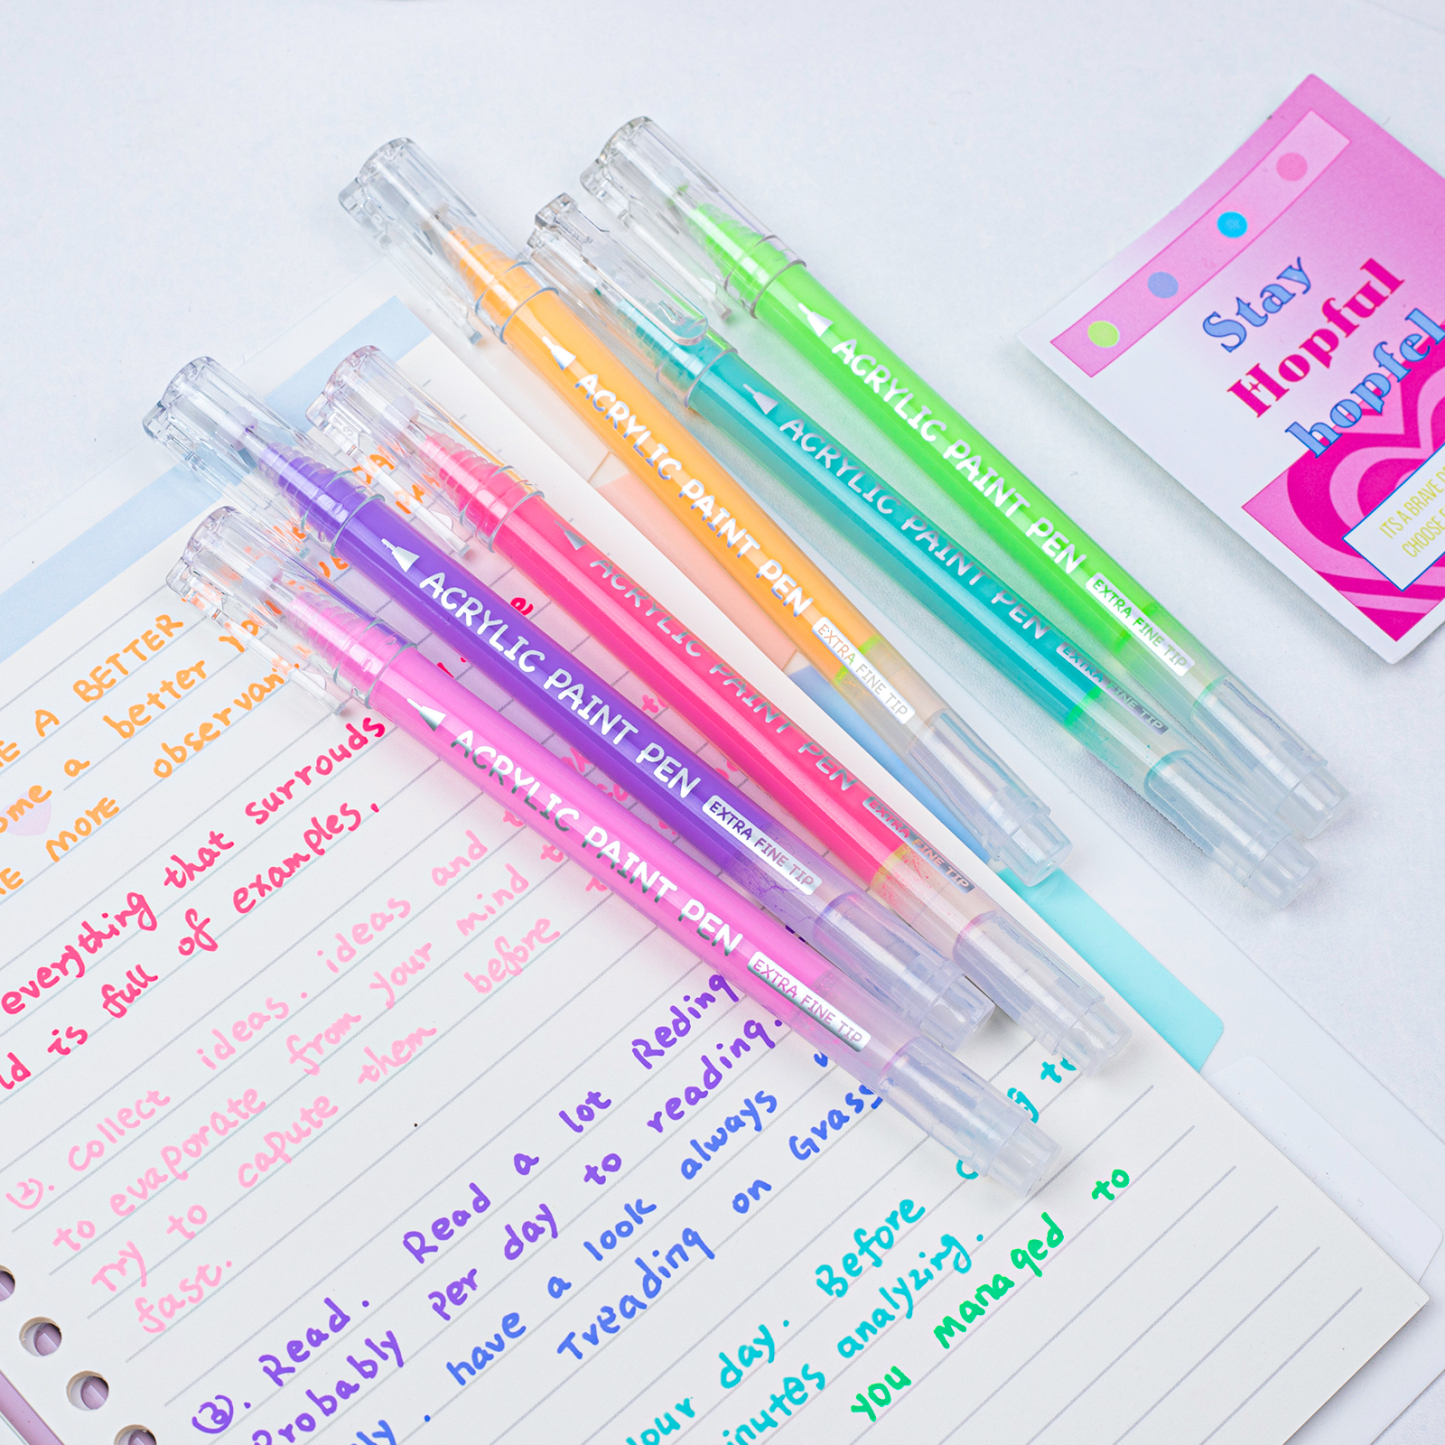 Stay
Hopful
hopfel
ITS A BRAVE
CHOOSE
ACRYLIC PAINT PEN EXTRA FINE TIP
ACRYLIC PAINT PEN EXTRA FINE TIP
ACRYLIC PAINT PEN EXTRA FINE TIP
ACRYLIC PAINT PEN EXTRA FINE TIP
ACRYLIC PAINT PEN EXTRA FINE TIP
ACRYLIC PAINT PEN EXTRA FINE TIP
A BETTER
a better
MORE observant
everything that surrouds
is full of examples,
(2). collect ideas. ideas and
to evaporate from your mind
Try to capute them before
fast.
(3). Read. Read a lot Reding
Probably Per day to reading.
have a look always
Treading on Grass
day. Before
analyzing.
you managed to